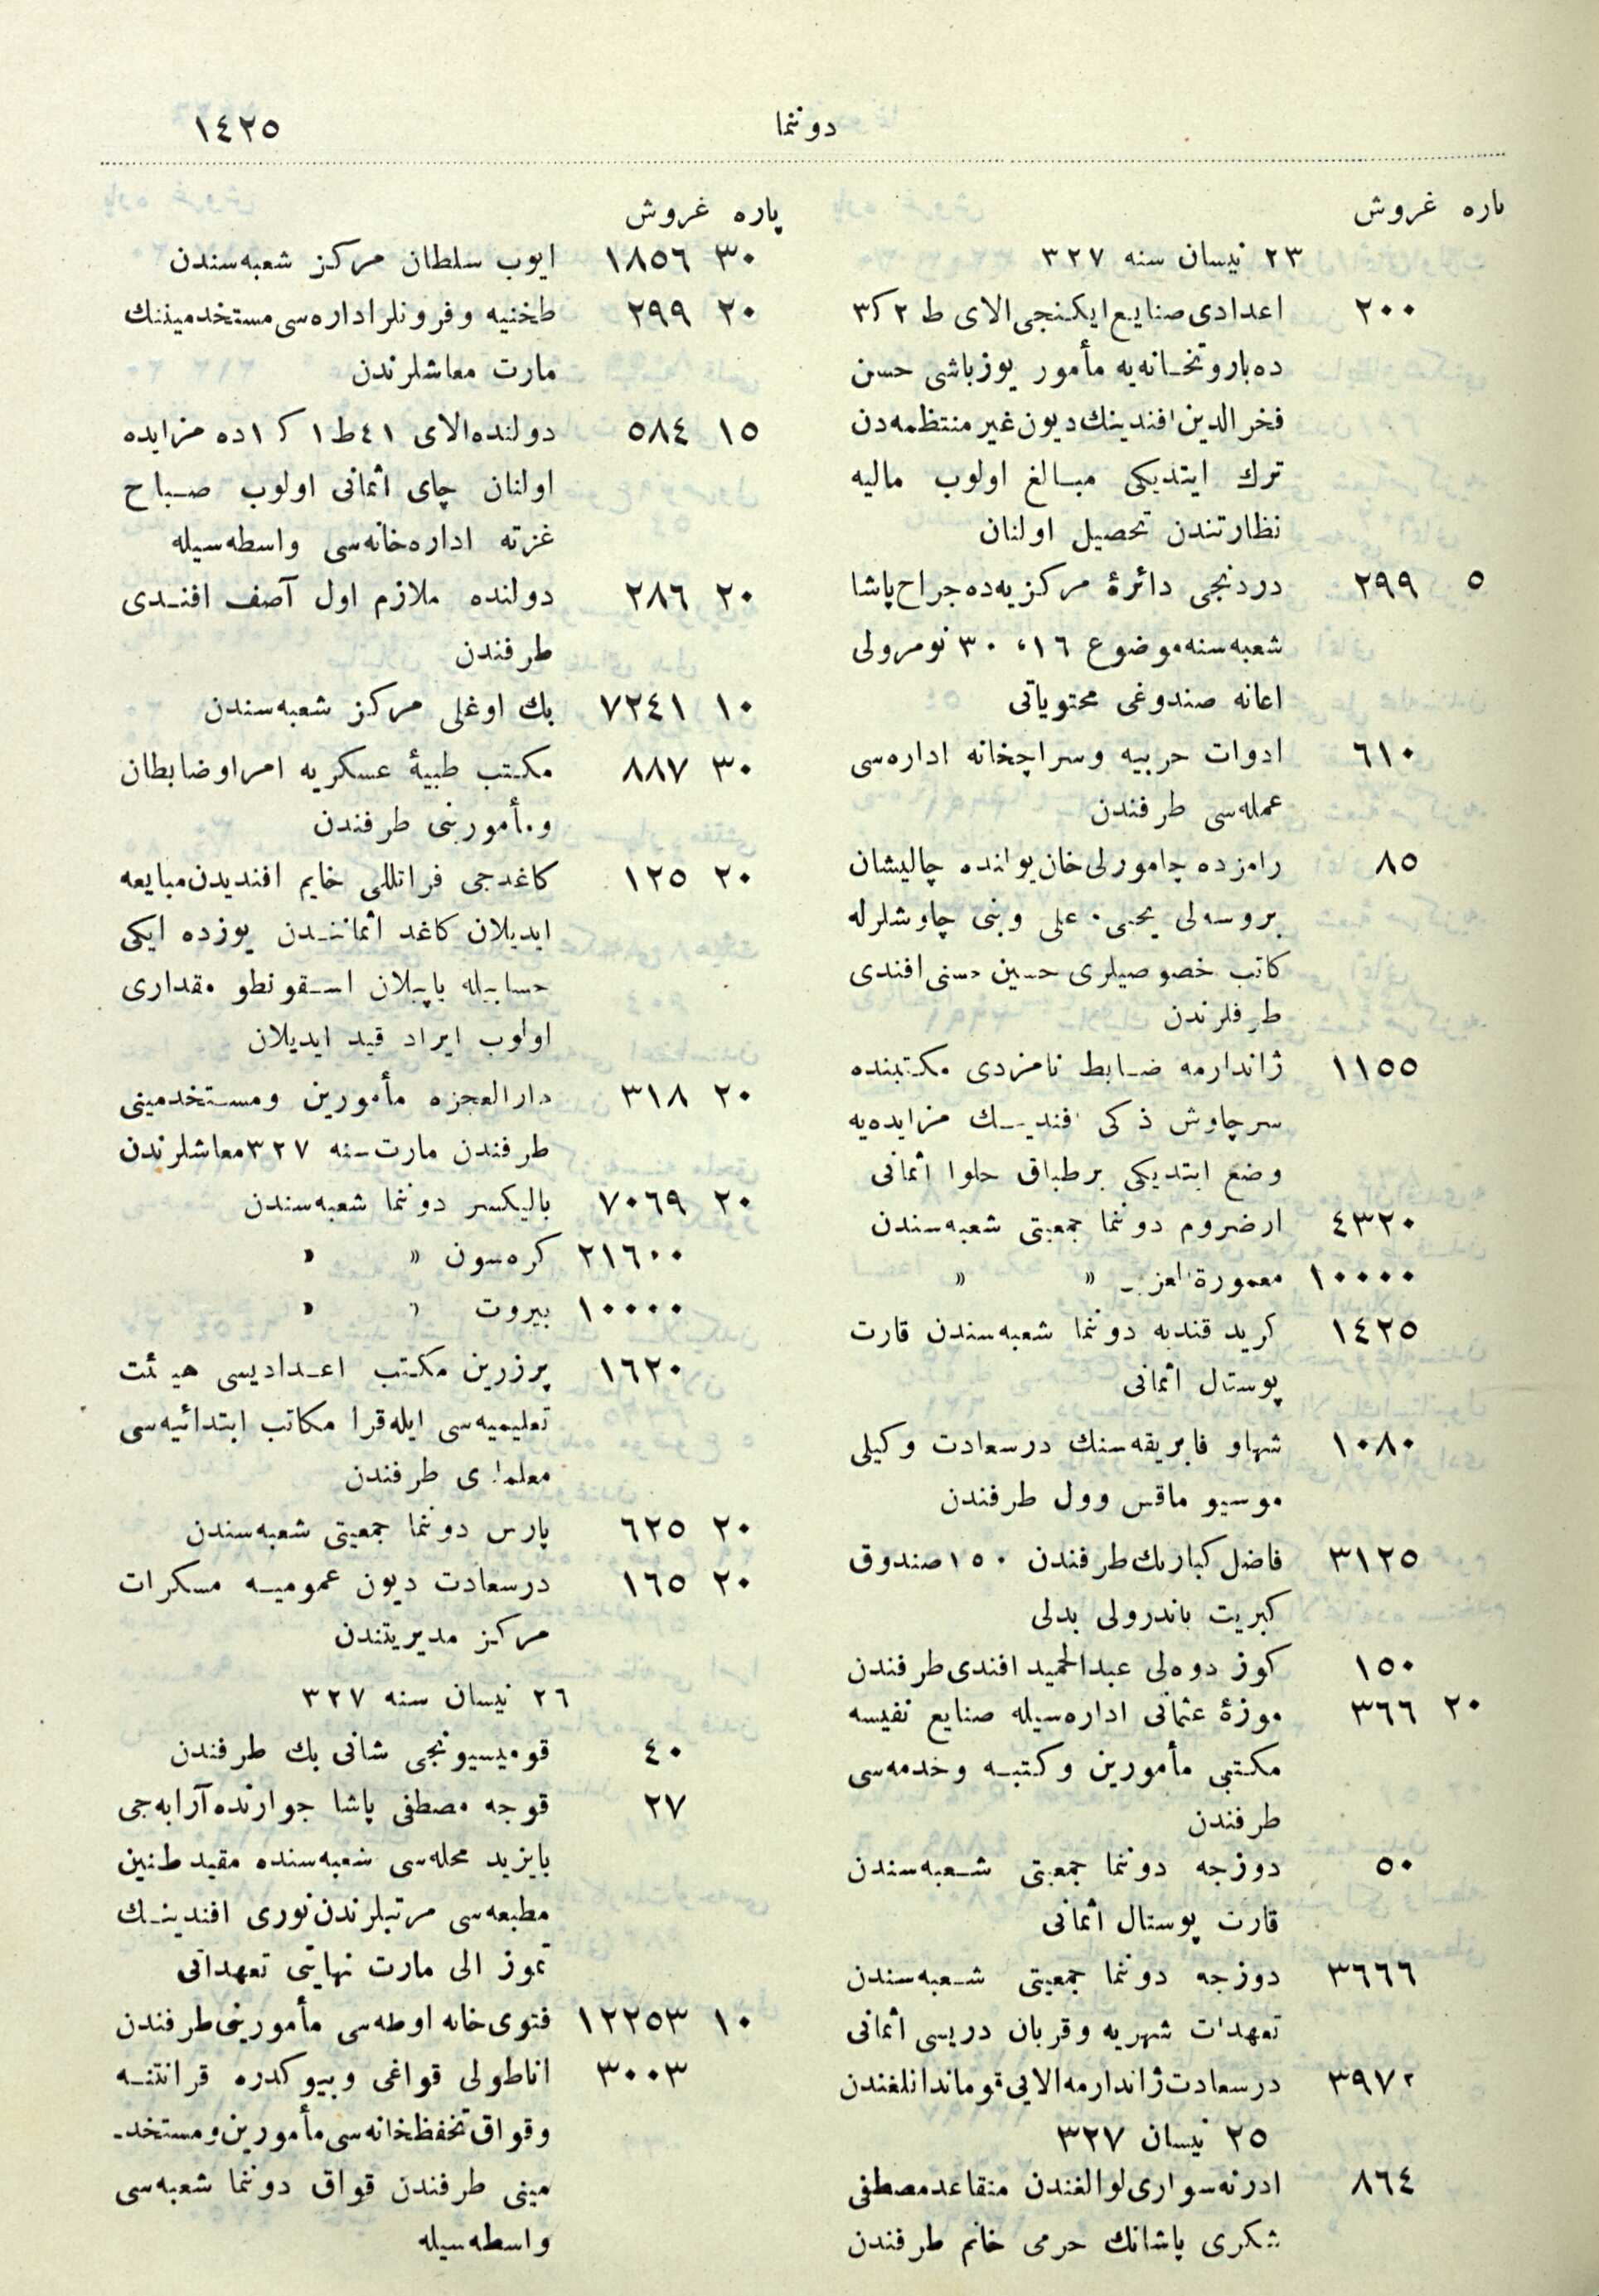 ١٤٢٥
دوننما
پاره غروش
٢٣ نيسان سنه ٣٢٧
٢٠٠ اعدادى صنايع ايكنجى الاى ط ٢ ك ٣
ده باروتخانه‌يه مأمور يوزباشى حسن
فخرالدين افندينك ديون غير منتظمه‌دن
ترك ايتديكى مبالغ اولوب ماليه
نظارتندن تحصيل اولنان
٥ ٢٩٩ دردنجى دائرۀ مركزيه‌ده جراح پاشا
شعبه‌سنه موضوع ١٦، ٣٠ نومرولى
اعانه صندوغى محتوياتى
٦١٠ ادوات حربيه وسراجخانه اداره‌سى
عمله‌سى طرفندن
٨٥ رامزده چامورلى خان يواننده چاليشان
بروسه‌لى يحيى، على وبنى چاوشلرله
كاتب خصوصيلرى حسين حسنى افندى
طرفلرندن
١١٥٥ ژاندارمه ضابط نامزدى مكتبنده
سرچاوش ذكى افندينك مزايده‌يه
وضع ايتديكى برطباق حلوا اثمانى
٤٣٢٠ ارضروم دوننما جمعيتى شعبه‌سندن
١٠٠٠٠ معمورة العزيز » »
١٤٢٥ كريد قنديه دوننما شعبه‌سندن قارت
پوستال اثمانى
١٠٨٠ شهاو فابريقه‌سنك درسعادت وكيلى
موسيو ماقس وول طرفندن
٣١٢٥ فاضل كباربك طرفندن ١٥٠ صندوق
كبريت باندرولى بدلى
١٥٠ كوز دوه‌لى عبدالحميد افندى طرفندن
٢٠ ٣٦٦ موزۀ عثمانى اداره‌سيله صنايع نفيسه
مكتبى مأمورين وكتبه وخدمه‌سى
طرفندن
٥٠ دوزجه دوننما جمعيتى شعبه‌سندن
قارت پوستال اثمانى
٣٦٦٦ دوزجه دوننما جمعيتى شعبه‌سندن
تعهدات شهريه وقربان دريسى اثمانى
٣٩٧٢ درسعادت ژاندارمه الايى قوماندانلغندن
٢٥ نيسان ٣٢٧
٨٦٤ ادرنه سوارى لوالغندن متقاعد مصطفى
شكرى پاشانك حرمى خانم طرفندن
پاره غروش
٣٠ ١٨٥٦ ايوب سلطان مركز شعبه‌سندن
٢٠ ٢٩٩ طخنيه وفرونلر اداره‌سى مستخدميننك
مارت معاشلرندن
١٥ ٥٨٤ دولنده الاى ٤١ ط ١ ك ١ ده مزايده
اولنان چاى اثمانى اولوب صباح
غزته اداره‌خانه‌سى واسطه‌سيله
٢٠ ٢٨٦ دولنده ملازم اول آصف افندى
طرفندن
١٠ ٧٢٤١ بك اوغلى مركز شعبه‌سندن
٣٠ ٨٨٧ مكتب طبيۀ عسكريه امرا وضابطان
ومأمورينى طرفندن
٢٠ ١٢٥ كاغدجى فراتللى خايم افنديدن مبايعه
ايديلان كاغد اثماننندن يوزده ايكى
حسابيله ياپيلان اسقونطو مقدارى
اولوب ايراد قيد ايديلان
٢٠ ٣١٨ دارالعجزه مأمورين ومستخدمينى
طرفندن مارت سنه ٣٢٧ معاشلرندن
٢٠ ٧٠٦٩ باليكسر دوننما شعبه‌سندن
٢١٦٠٠ كره‌سون » »
١٠٠٠٠ بيروت » »
١٦٢٠ پرزرين مكتب اعداديسى هيئت
تعليميه‌سى ايله قرا مكاتب ابتدائيه‌سى
معلملرى طرفندن
٢٠ ٦٢٥ پارس دوننما جمعيتى شعبه‌سندن
٢٠ ١٦٥ درسعادت ديون عموميه مسكرات
مركز مديريتندن
٢٦ نيسان سنه ٣٢٧
٤٠ قوميسيونجى شانى بك طرفندن
٢٧ قوجه مصطفى پاشا جوارنده آرابه‌جى
بايزيد محله‌سى شعبه‌سنده مقيد طنين
مطبعه‌سى مرتبلرندن نورى افندينك
تموز الى مارت نهايتى تعهداتى
١٠ ١٢٢٥٣ فتوى‌خانه اوطه‌سى مأمورينى طرفندن
٣٠٠٣ اناطولى قواغى وبيوكدره قرانتنه
وقواق تحفظخانه‌سى مأمورين ومستخد-
مينى طرفندن قواق دوننما شعبه‌سى
واسطه‌سيله